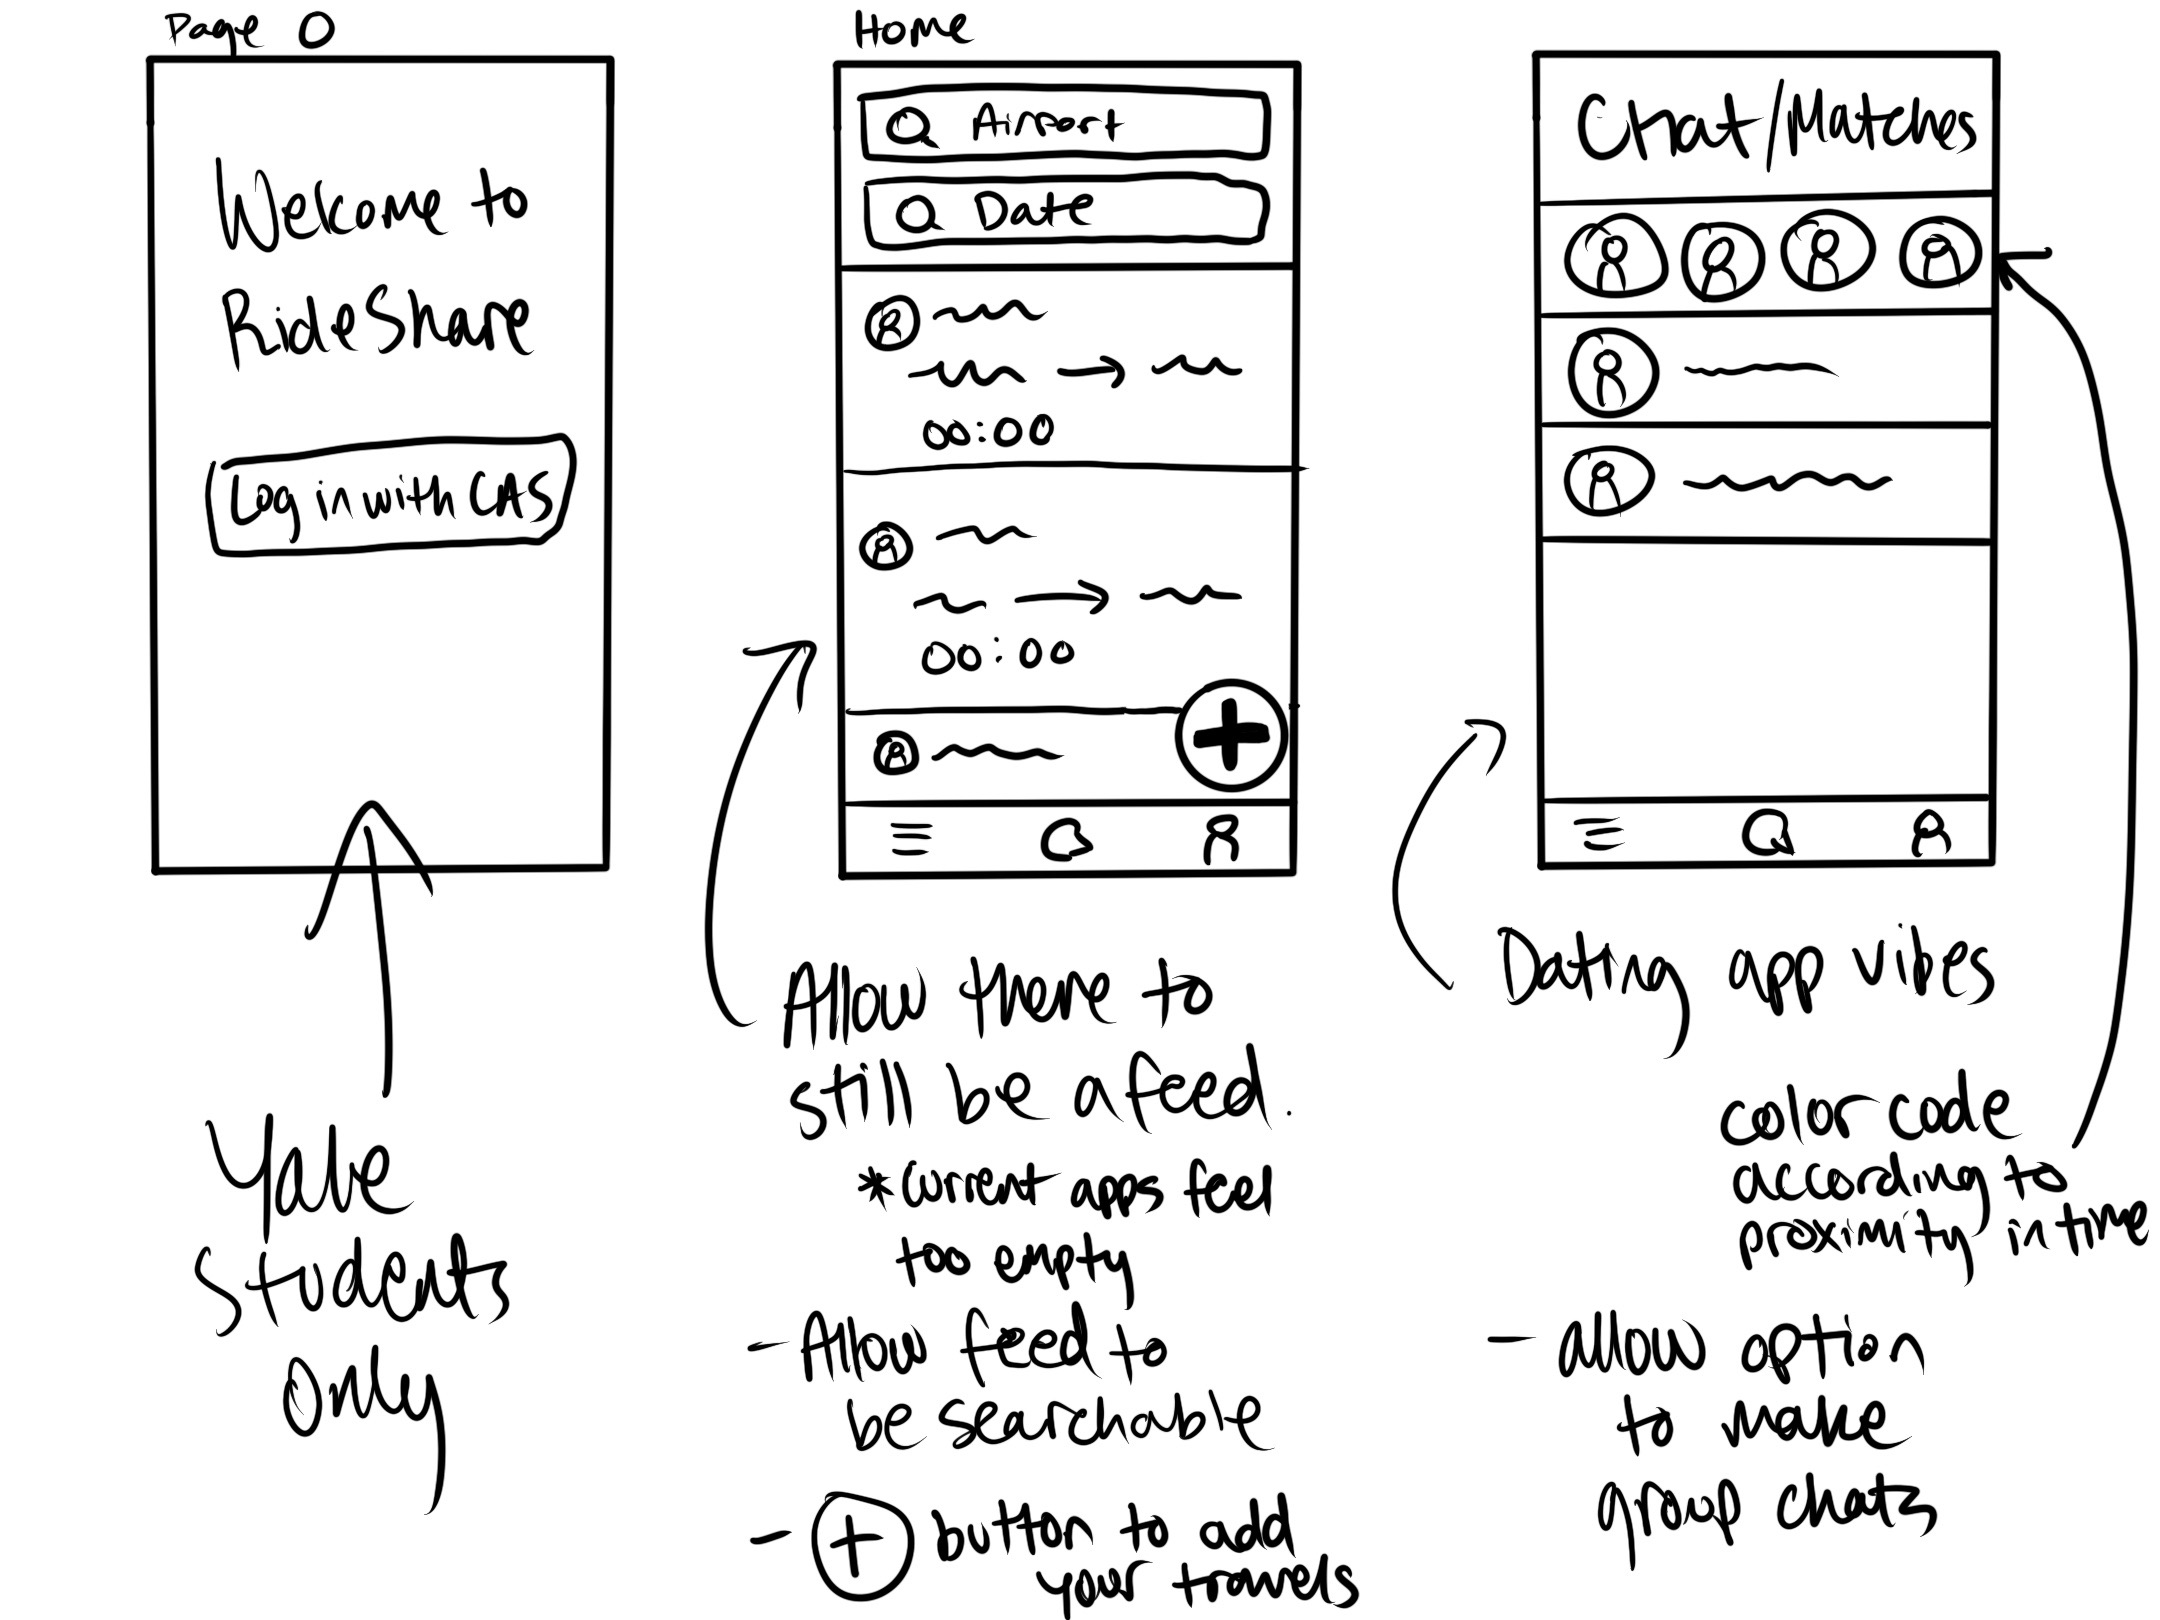 Page 0
Welcome to
RideShare
Log in with CAS
Yale
students
only
Home
Airport
Date
00:00
00:00
Allow there to
still be a feed.
* Current apps feel
too empty
- Allow feed to
be searchable
- + button to add
your travels
Chat/Matches
Dating app vibes
color code
according to
proximity in time
- allow option
to make
group chats